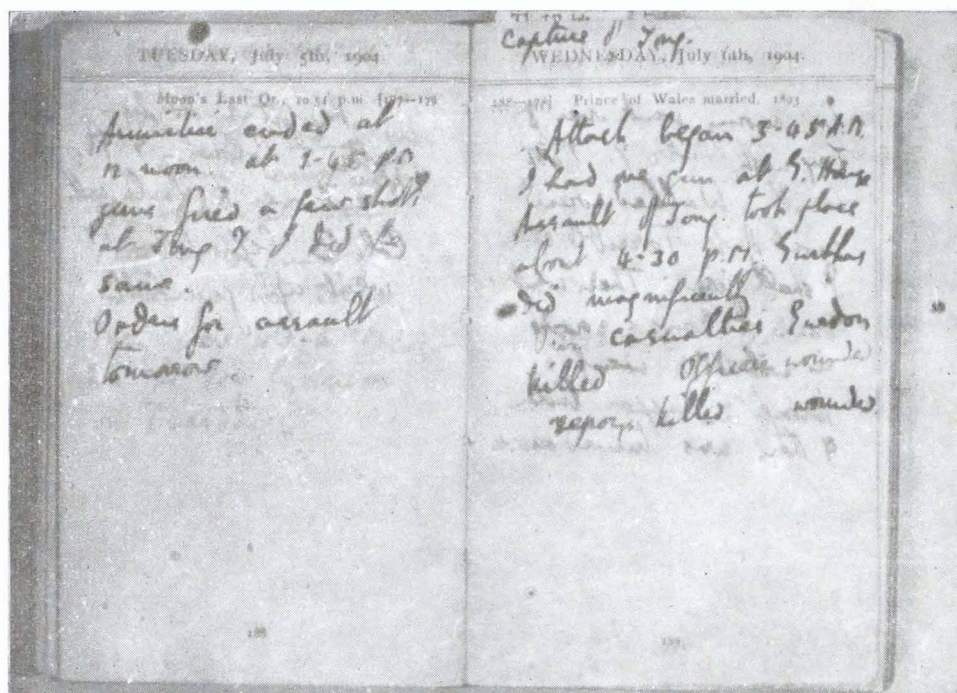 TUESDAY, July 5th, 1904
Moon's Last Qr., 10.54 p.m. [187—179
Armistice ended at
12 noon. at 1-45 P.M.
guns fired a few shots
at Jong & I did the
same.
Orders for assault
tomorrow.
188
Capture of Jong.
WEDNESDAY, July 6th, 1904.
188—178] Prince of Wales married, 1893
Attack began 3-45 A.M.
I had one gun at G.
Assault of Jong took place
about 4-30 P.M. Gurkhas
did magnificently
casualties Gurdon
killed Officers wounded
sepoys killed wounded
189